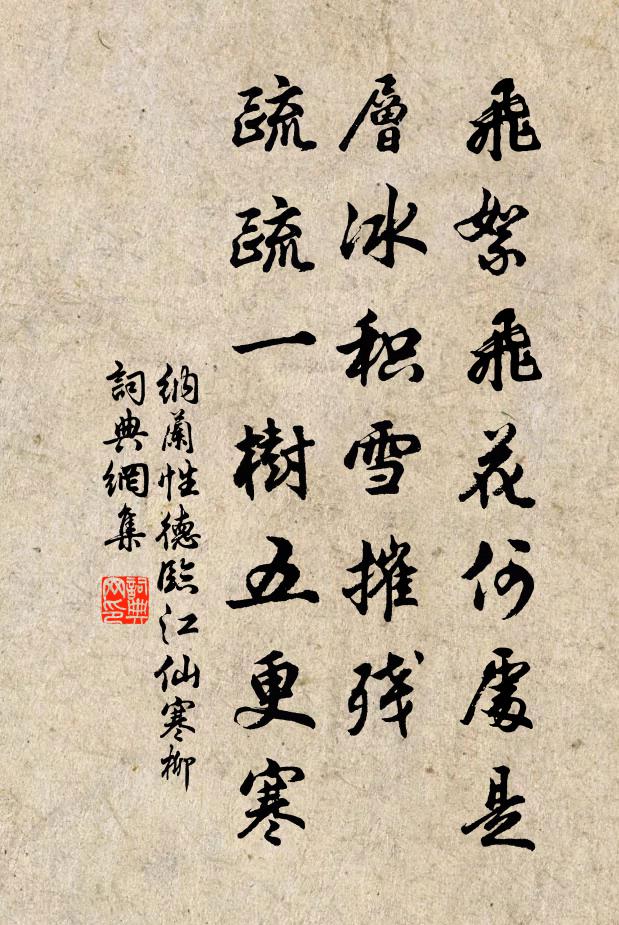 飛絮飛花何處是
層冰积雪摧殘
疏疏一樹五更寒
納蘭性德臨江仙寒柳
詞典網集
詞典网印